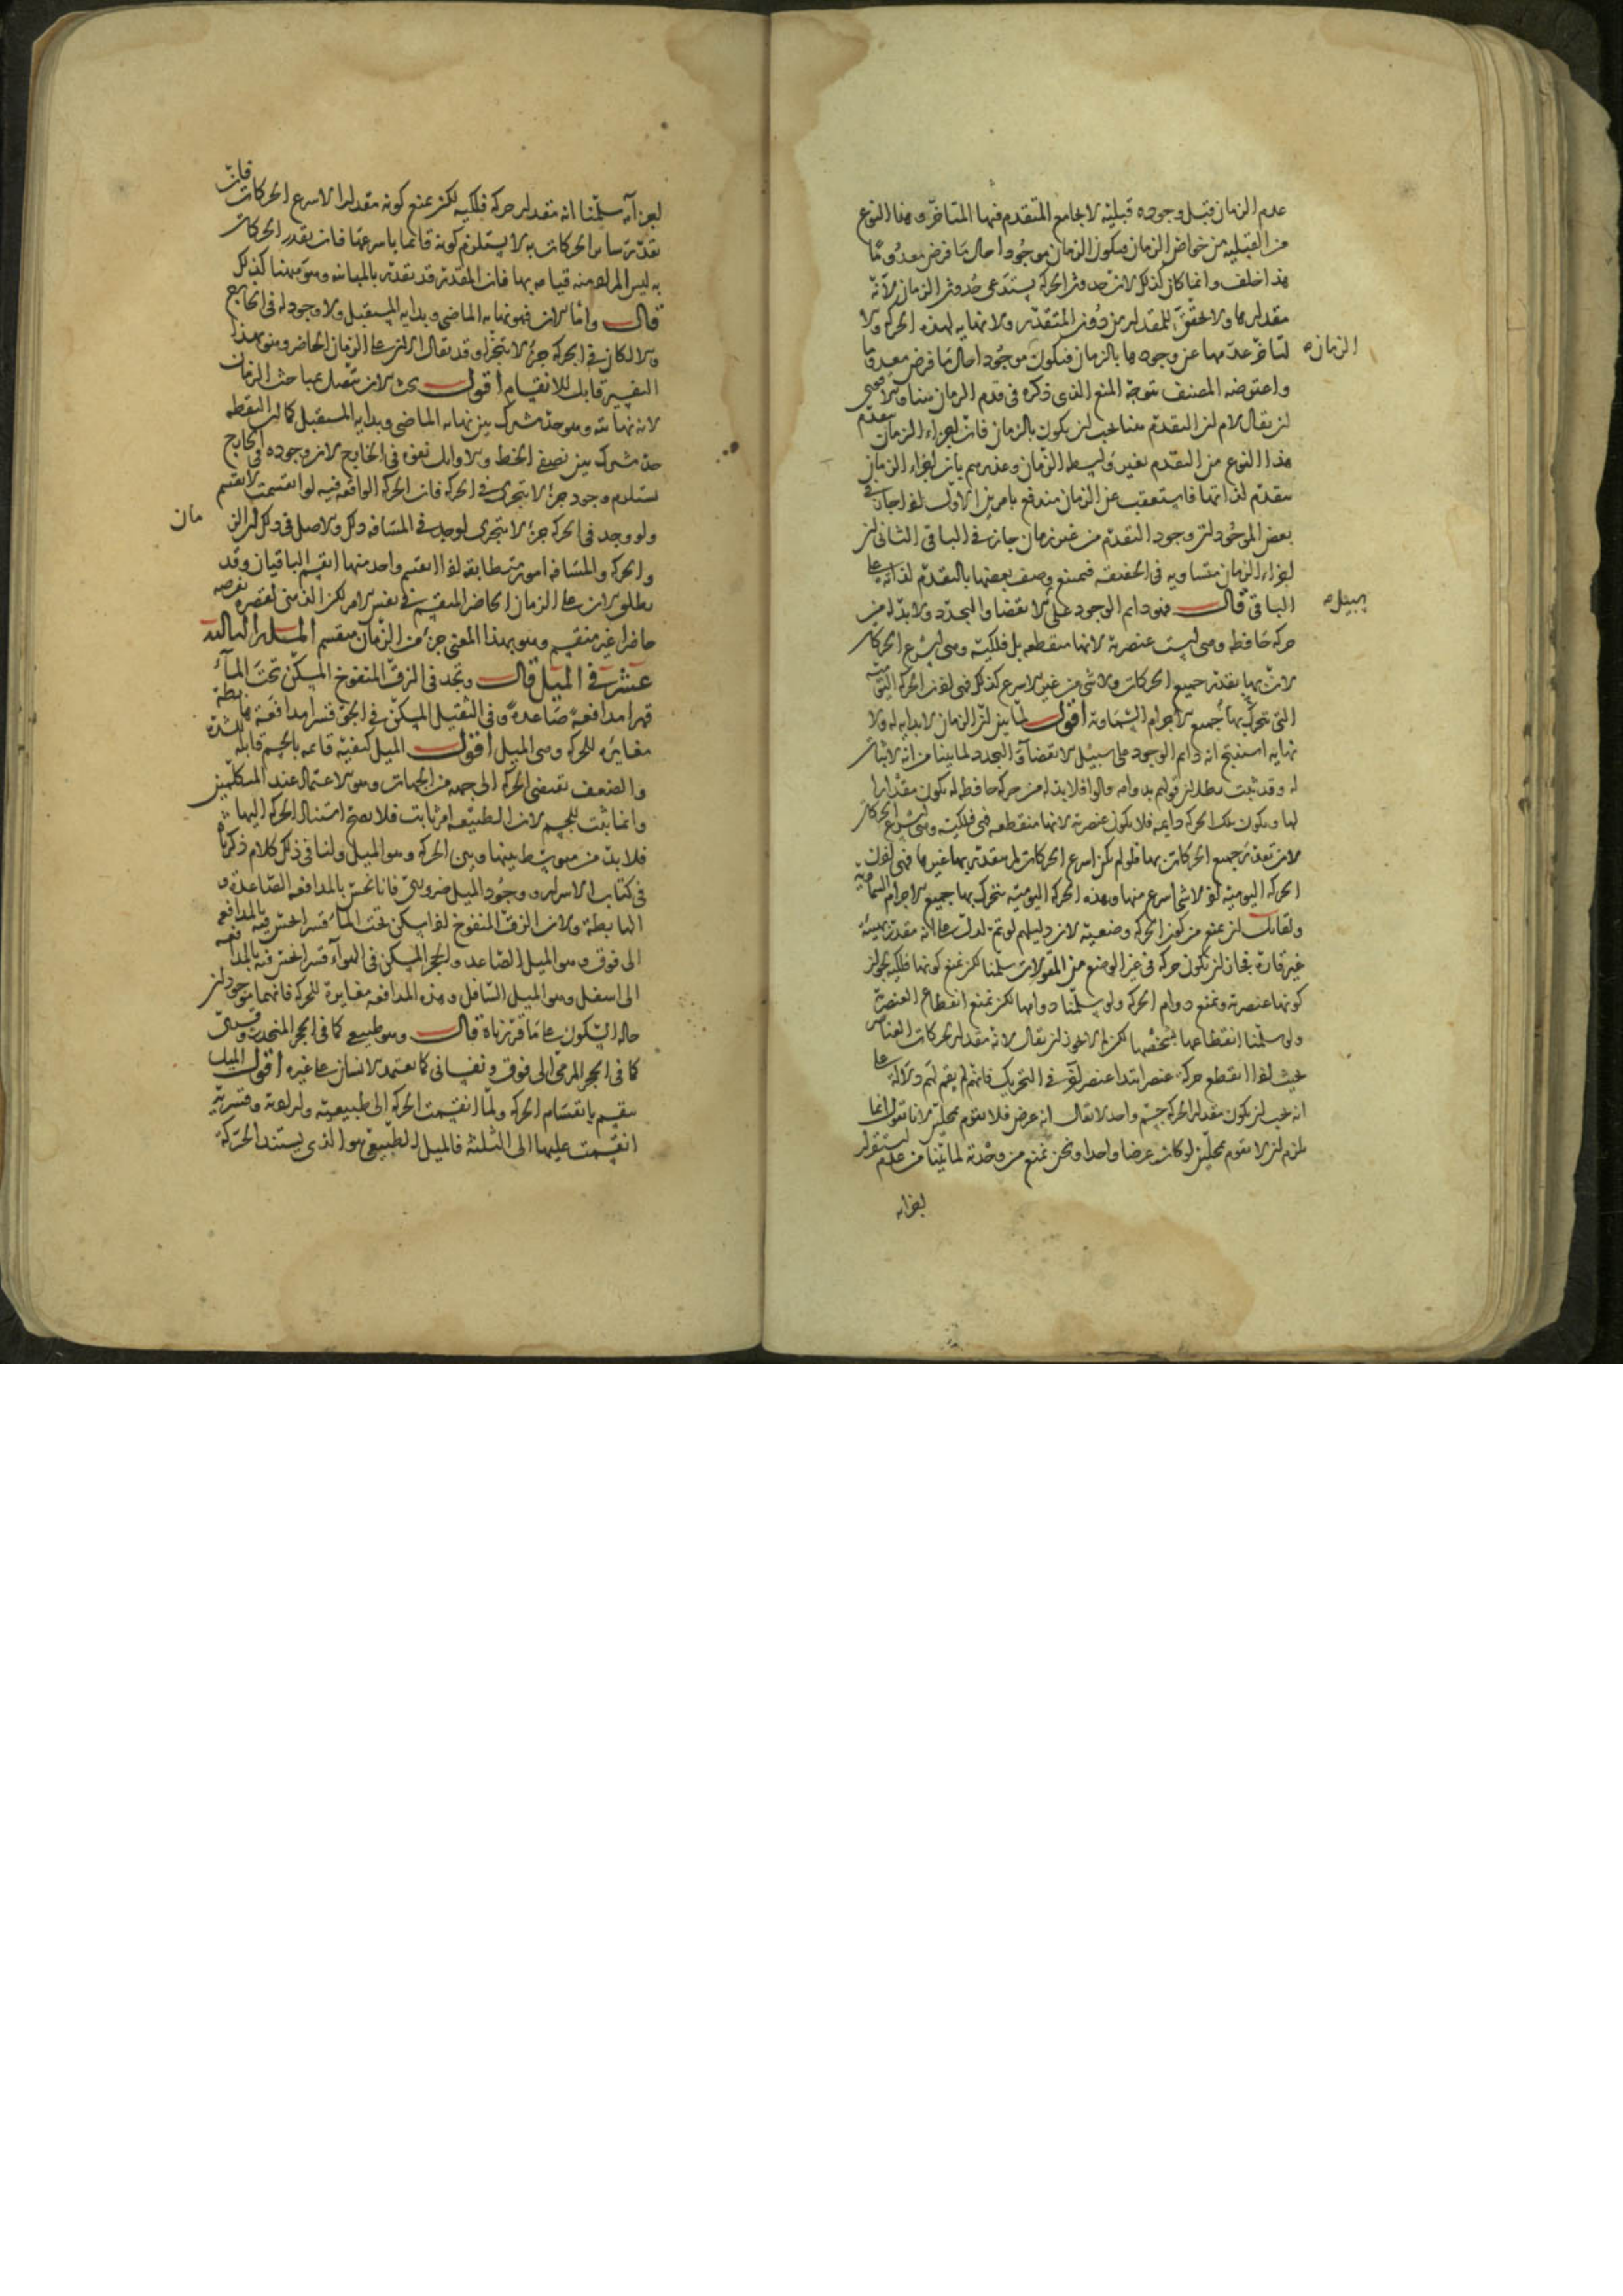 عدم الزمان قبل وجوده قبلية لا يجامع المتقدم فيها المتأخر وهذا النوع
من القبلية من خواص الزمان فيكون الزمان موجودا حال ما فرض معدوما
هذا خلف وانما كان كذلك لان حدوث الحركة يستدعى حدوث الزمان لانه
مقدارها ولا تحقق للمقدار من دون المتقدر ولا نهاية لهذه الحركة ولا
لتأخر عدمها عن وجودها بالزمان فيكون موجودا حال ما فرض معدوما
الزمان
واعترضه المصنف بتوجه المنع الذى ذكره فى قدم الزمان هنا
لن يقال لم لن التقدم هنا يجب لن يكون بالزمان فان اجزاء الزمان تتقدم
هذا النوع من التقدم بغير واسطة الزمان وعذرهم بان اجزاء الزمان
متقدم لذاتها فاستعقب عن الزمان مندفع بامرين الاول اذا جاز فى
بعض الموجودات وجود التقدم من غير زمان جاز فى الباقى الثانى لن
اجزاء الزمان متساوية فى الحقيقة فيمتنع وصف بعضها بالتقدم لذاته على
الباقى قال فهو دائم الوجود على الانقضا والتجدد ولا بد له من
سبيل
حركة حافظة وهى ليست عنصرية لانها منقطعة بل فلكية وهى اسرع الحركات
لان بها تقدر جميع الحركات ولا شى من غير الاسرع كذلك فهى اذن الحركة اليومية
التى تتحرك بها جميع الاجرام السماوية اقول لما بين لن الزمان لا بداية له ولا
نهاية استنتج انه دائم الوجود على سبيل الانقضاء والتجدد لما بينا من انه لا ثبات
له وقد ثبت بطلان قولهم بدوامه قالوا فلا بد له من حركة حافظة له يكون مقدارا
لها ويكون تلك الحركة دايمة فلا يكون عنصرية لانها منقطعة فهى فلكية وهى اسرع الحركات
لان تقدر جميع الحركات بها فلو لم تكن اسرع الحركات لم يتقدر بها غيرها فهى اذن
الحركة اليومية اذ لا شى اسرع منها وهذه الحركة اليومية يتحرك بها جميع الاجرام السماوية
ولقائل لن يمنع من كون الحركة وضعية لان دليلهم لو تم لدل على انه مقدر بهيئة
غير قارة فجاز لن تكون حركة فى غير الوضع من المقولات سلمنا لكن نمنع كونها فلكية لجواز
كونها عنصرية ونمنع دوام الحركة ولو سلمنا دوامها لكن نمنع انقطاع العنصرية
ولو سلمنا انقطاعها بشخصها لكن لم لا يجوز لن يقال لانه مقدار لحركات العناصر
بحيث اذا انقطع حركة عنصر ابتدا عنصر آخر فى التحريك فانهم لم يقم لهم دلالة على
انه يجب لن يكون مقدار الحركة جسم واحد لا يقال انه عرض فلا يقوم بمحلين لانا نقول انما
يلزم لن لا يقوم بمحلين لو كان عرضا واحدا ونحن نمنع من وحدته لما بينا من عدم استقرار
اجزائه
اجزائه سلمنا انه مقدار حركة فلكية لكن نمنع كونه مقدارا لاسرع الحركات فان
تقدر سائر الحركات به لا يستلزم كونه قائما باسرعها فان تقدر الحركات
به ليس المراد منه قيامه بها فان المقدر قد يقدر بالمباينة وهو هنا كذلك
قال واما الان فهو نهاية الماضى وبداية المستقبل ولا وجود له فى الخارج
والا لكان فى الحركة جزء لا يتجزأ وقد يقال الان على الزمان الحاضر وهو بهذا
التفسير قابل للانقسام اقول بحث الان يتصل بمباحث الزمان
لانه نهايته وهو حد مشترك بين نهاية الماضى وبداية المستقبل كما لن النقطة
حد مشترك بين نصفى الخط والاول يمنع فى الخارج لان وجوده فى الخارج
يستلزم وجود جزء لا يتجزى فى الحركة فان الحركة الواقعة فيه لو انقسمت لانقسم
ولو وجد فى الحركة جزء لا يتجزى لوجد فى المسافة ذلك والاصل فى ذلك لن الزمان
والحركة والمسافة امور متطابقة اذا انقسم واحد منها انقسم الباقيان وقد
يطلق الان على الزمان الحاضر المنقسم فى نفس الامر لكن الذهن يفرضه
حاضرا غير منقسم وهو بهذا المعنى جزء من الزمان منقسم المسألة الثالثة
عشر فى الميل قال ونجد فى الزق المنفوخ المسكن تحت الماء
قهرا مدافعة صاعدة وفى الثقيل المسكن فى الجو قسرا مدافعة هابطة
مغايرة للحركة وهى الميل اقول الميل كيفية قائمة بالجسم قابلة للشدة
والضعف تقتضى الحركة الى جهة من الجهات وهو الاعتماد عند المتكلمين
وانما يثبت للجسم لان الطبيعة امر ثابت فلا يصح استناد الحركة اليها
فلا بد من متوسط بينها وبين الحركة وهو الميل ولنا فى ذلك كلام ذكرناه
فى كتاب الاسرار ووجود الميل ضرورى فانا نحس بالمدافعة الصاعدة و
الهابطة ولان الزق المنفوخ اذا سكن تحت الماء قسرا نحس فيه بالمدافعة
الى فوق وهو الميل الصاعد والحجر المسكن فى الهواء قسرا نحس فيه بالمدافعة
الى اسفل وهو الميل السافل وهذه المدافعة مغايرة للحركة فانهما موجودان
حالة السكون على ما قررناه قال وهو طبيعى كما فى الحجر المنحدر وقسرى
كما فى الحجر المرمى الى فوق ونفسانى كما يعتمد الانسان على غيره اقول الميل
ينقسم بانقسام الحركة ولما انقسمت الحركة الى طبيعية وارادية وقسرية
انقسمت عليها الى الثلثة فالميل الطبيعى هو الذى يستند الحركة